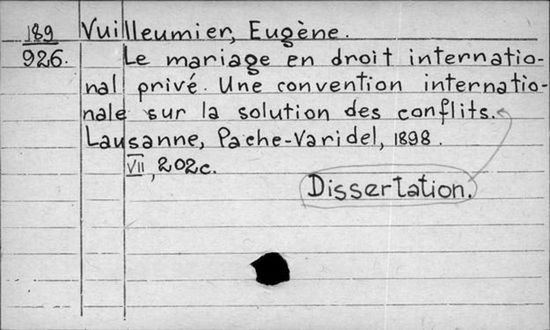 189 Vuilleumier, Eugène.
926. Le mariage en droit internatio-
nal privé. Une convention internatio-
nale sur la solution des conflits.
Lausanne, Pache-Varidel, 1898.
VII, 202c.
Dissertation.